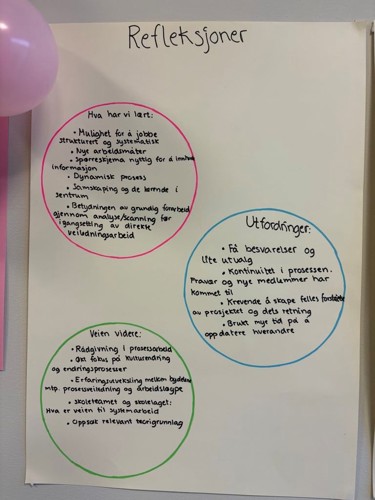 Refleksjoner
Hva har vi lært:
• Mulighet for å jobbe
strukturert og systematisk
• Nye arbeidsmåter
• Spørreskjema nyttig for å innhente
informasjon
• Dynamisk prosess
• Samskaping og de lærende i
sentrum
• Betydningen av grundig forarbeid
gjennom analyse/scanning før
igangsetting av direkte
veiledningsarbeid
Utfordringer:
• Få besvarelser og
lite utvalg
• Kontinuitet i prosessen.
Fravær og nye medlemmer har
kommet til
• Krevende å skape felles forståelse
av prosjektet og dets retning
• Brukt mye tid på å
oppdatere hverandre
Veien videre:
• Rådgivning i prosessarbeid
• Økt fokus på kulturendring
og endringsprosesser
• Erfaringsutveksling mellom bydelene
mtp. prosessveiledning og arbeidsløype
• Skoleteamet og skoleslaget:
Hva er veien til systemarbeid
• Oppsøk relevant teorigrunnlag